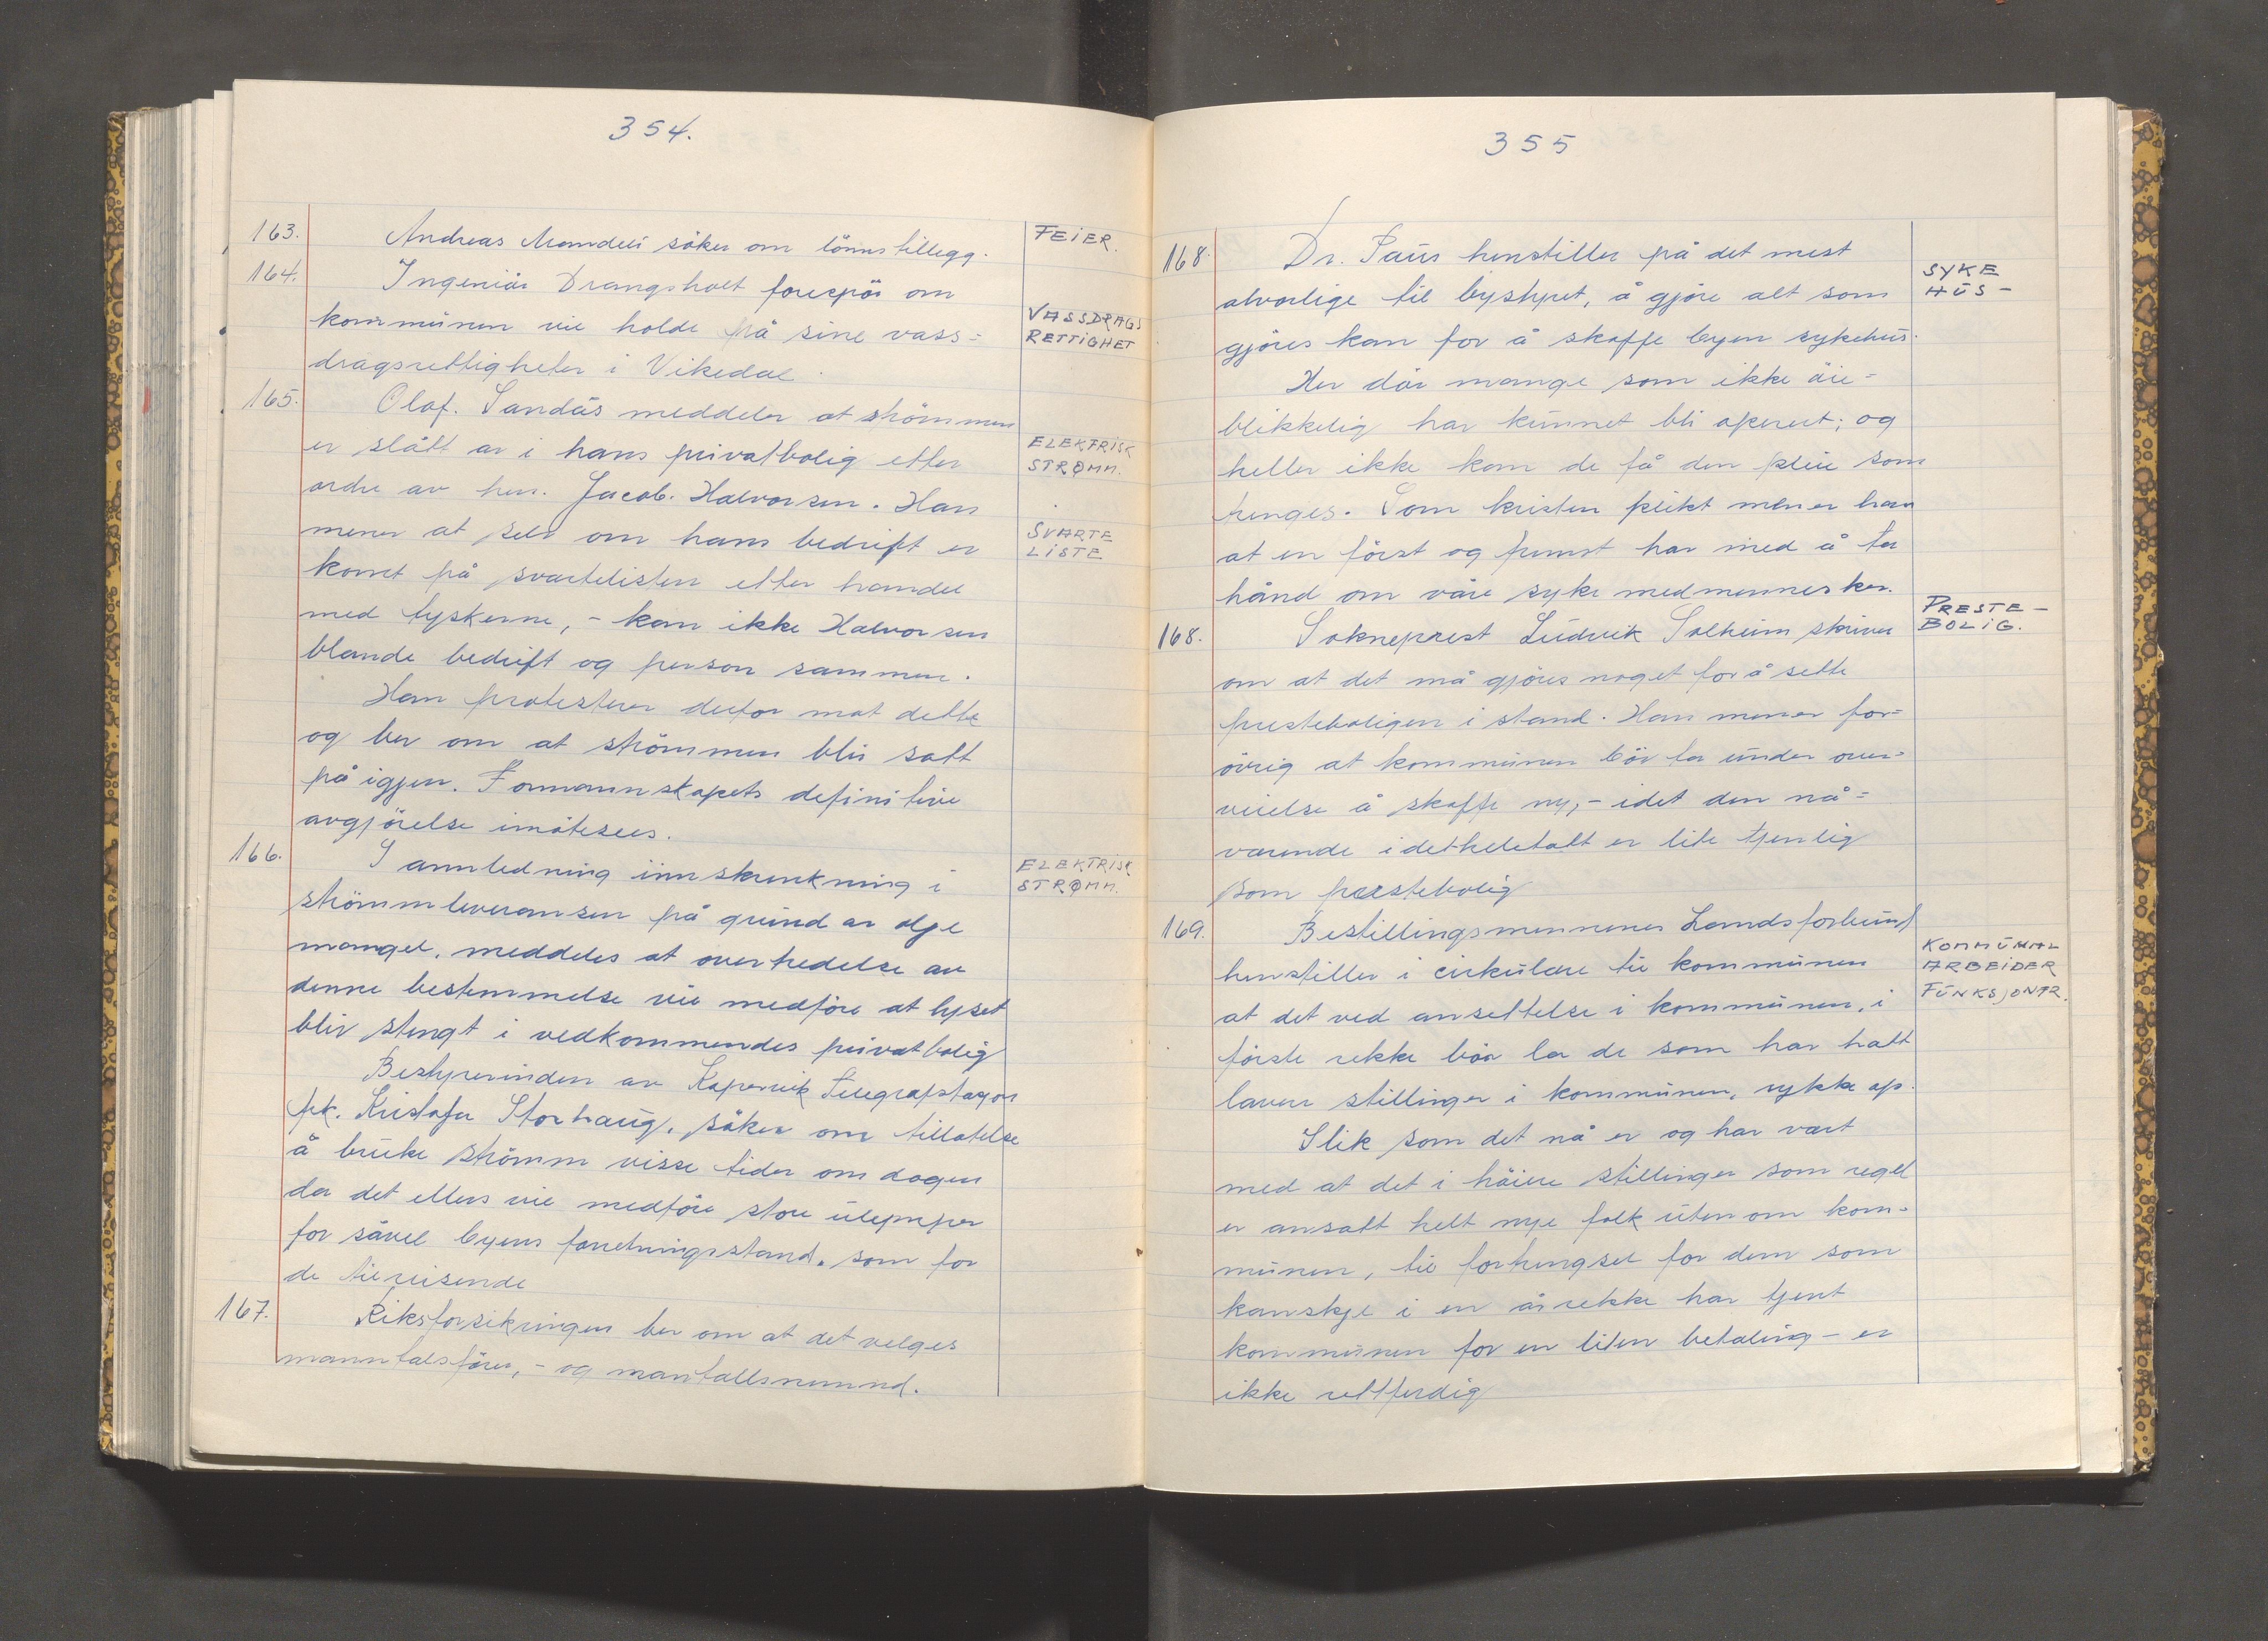 354.
163. Andreas Mandeli söker om lönnstillegg. FEIER.
164. Ingeniör Drangsholt forespör om
kommunen vil holde på sine vass= VASSDRAGS
RETTIGHET
dragsrettigheter i Vikedal.
165. Olaf. Sandås meddeler at strömmen
er slått av i hans privatbolig etter ELEKTRISK
STRØMM.
ordre av hrr. Jacob. Halvorsen. Han
mener at selv om hans bedrift er SVARTE
LISTE
komet på svartelisten etter handel
med tyskerne, - kan ikke Halvorsen
blande bedrift og person sammen.
Han protesterer derfor mot dette
og ber om at strömmen blir satt
på igjen. Formannskapets definitive
avgjörelse imötesees.
166. I annledning innskrenkning i ELEKTRISK
STRØMM.
strömmleveransen på grund av olje
mangel, meddeles at overtredelse av
denne bestemmelse vil medföre at lyset
blir stengt i vedkommendes privatbolig
Bestyrerinden av Kopervik Telegrafstasjon
frk. Kristofa Storhaug, söker om tillatelse
å bruke strömm visse tider om dagen
da det ellers vil medföre store ulemper
for såvel byens forretningsstand, som for
de tilreisende
167. Riksforsikringen ber om at det velges
manntalsförer, - og mantallsnemnd.
355
168. Dr. Paus henstiller på det mest
alvorlige til bystyret, å gjöre alt som SYKE
HUS-
gjöres kan for å skaffe byen sykehus.
Her dör mange som ikke öie=
blikkelig har kunnet bli operert; og
heller ikke kan de få den pleie som
trenges. Som kristen plikt mener han
at en först og fremst har med å ta
hånd om våre syke medmennesker.
168. Sokneprest Ludvik Solheim skriver PRESTE-
BOLIG.
om at det må gjöres noget for å sette
presteboligen i stand. Han mener for=
övrig at kommunen bör ta under over=
veielse å skaffe ny, - idet den nå=
værende i detheletatt er lite tjenlig
som prestebolig
169. Bestillingsmennenes Landsforbund
henstiller i cirkulære til kommunen KOMMUNAL
ARBEIDER
FUNKSJONÆR.
at det ved ansettelse i kommunen, i
förste rekke bör la de som har hatt
lavere stillinger i kommunen, rykke op.
Slik som det nå er og har vært
med at det i höiere stillinger som regel
er ansatt helt nye folk utenom kom=
munen, til fortrengsel for dem som
kanskje i en årrekke har tjent
kommunen for en liten betaling - er
ikke rettferdig